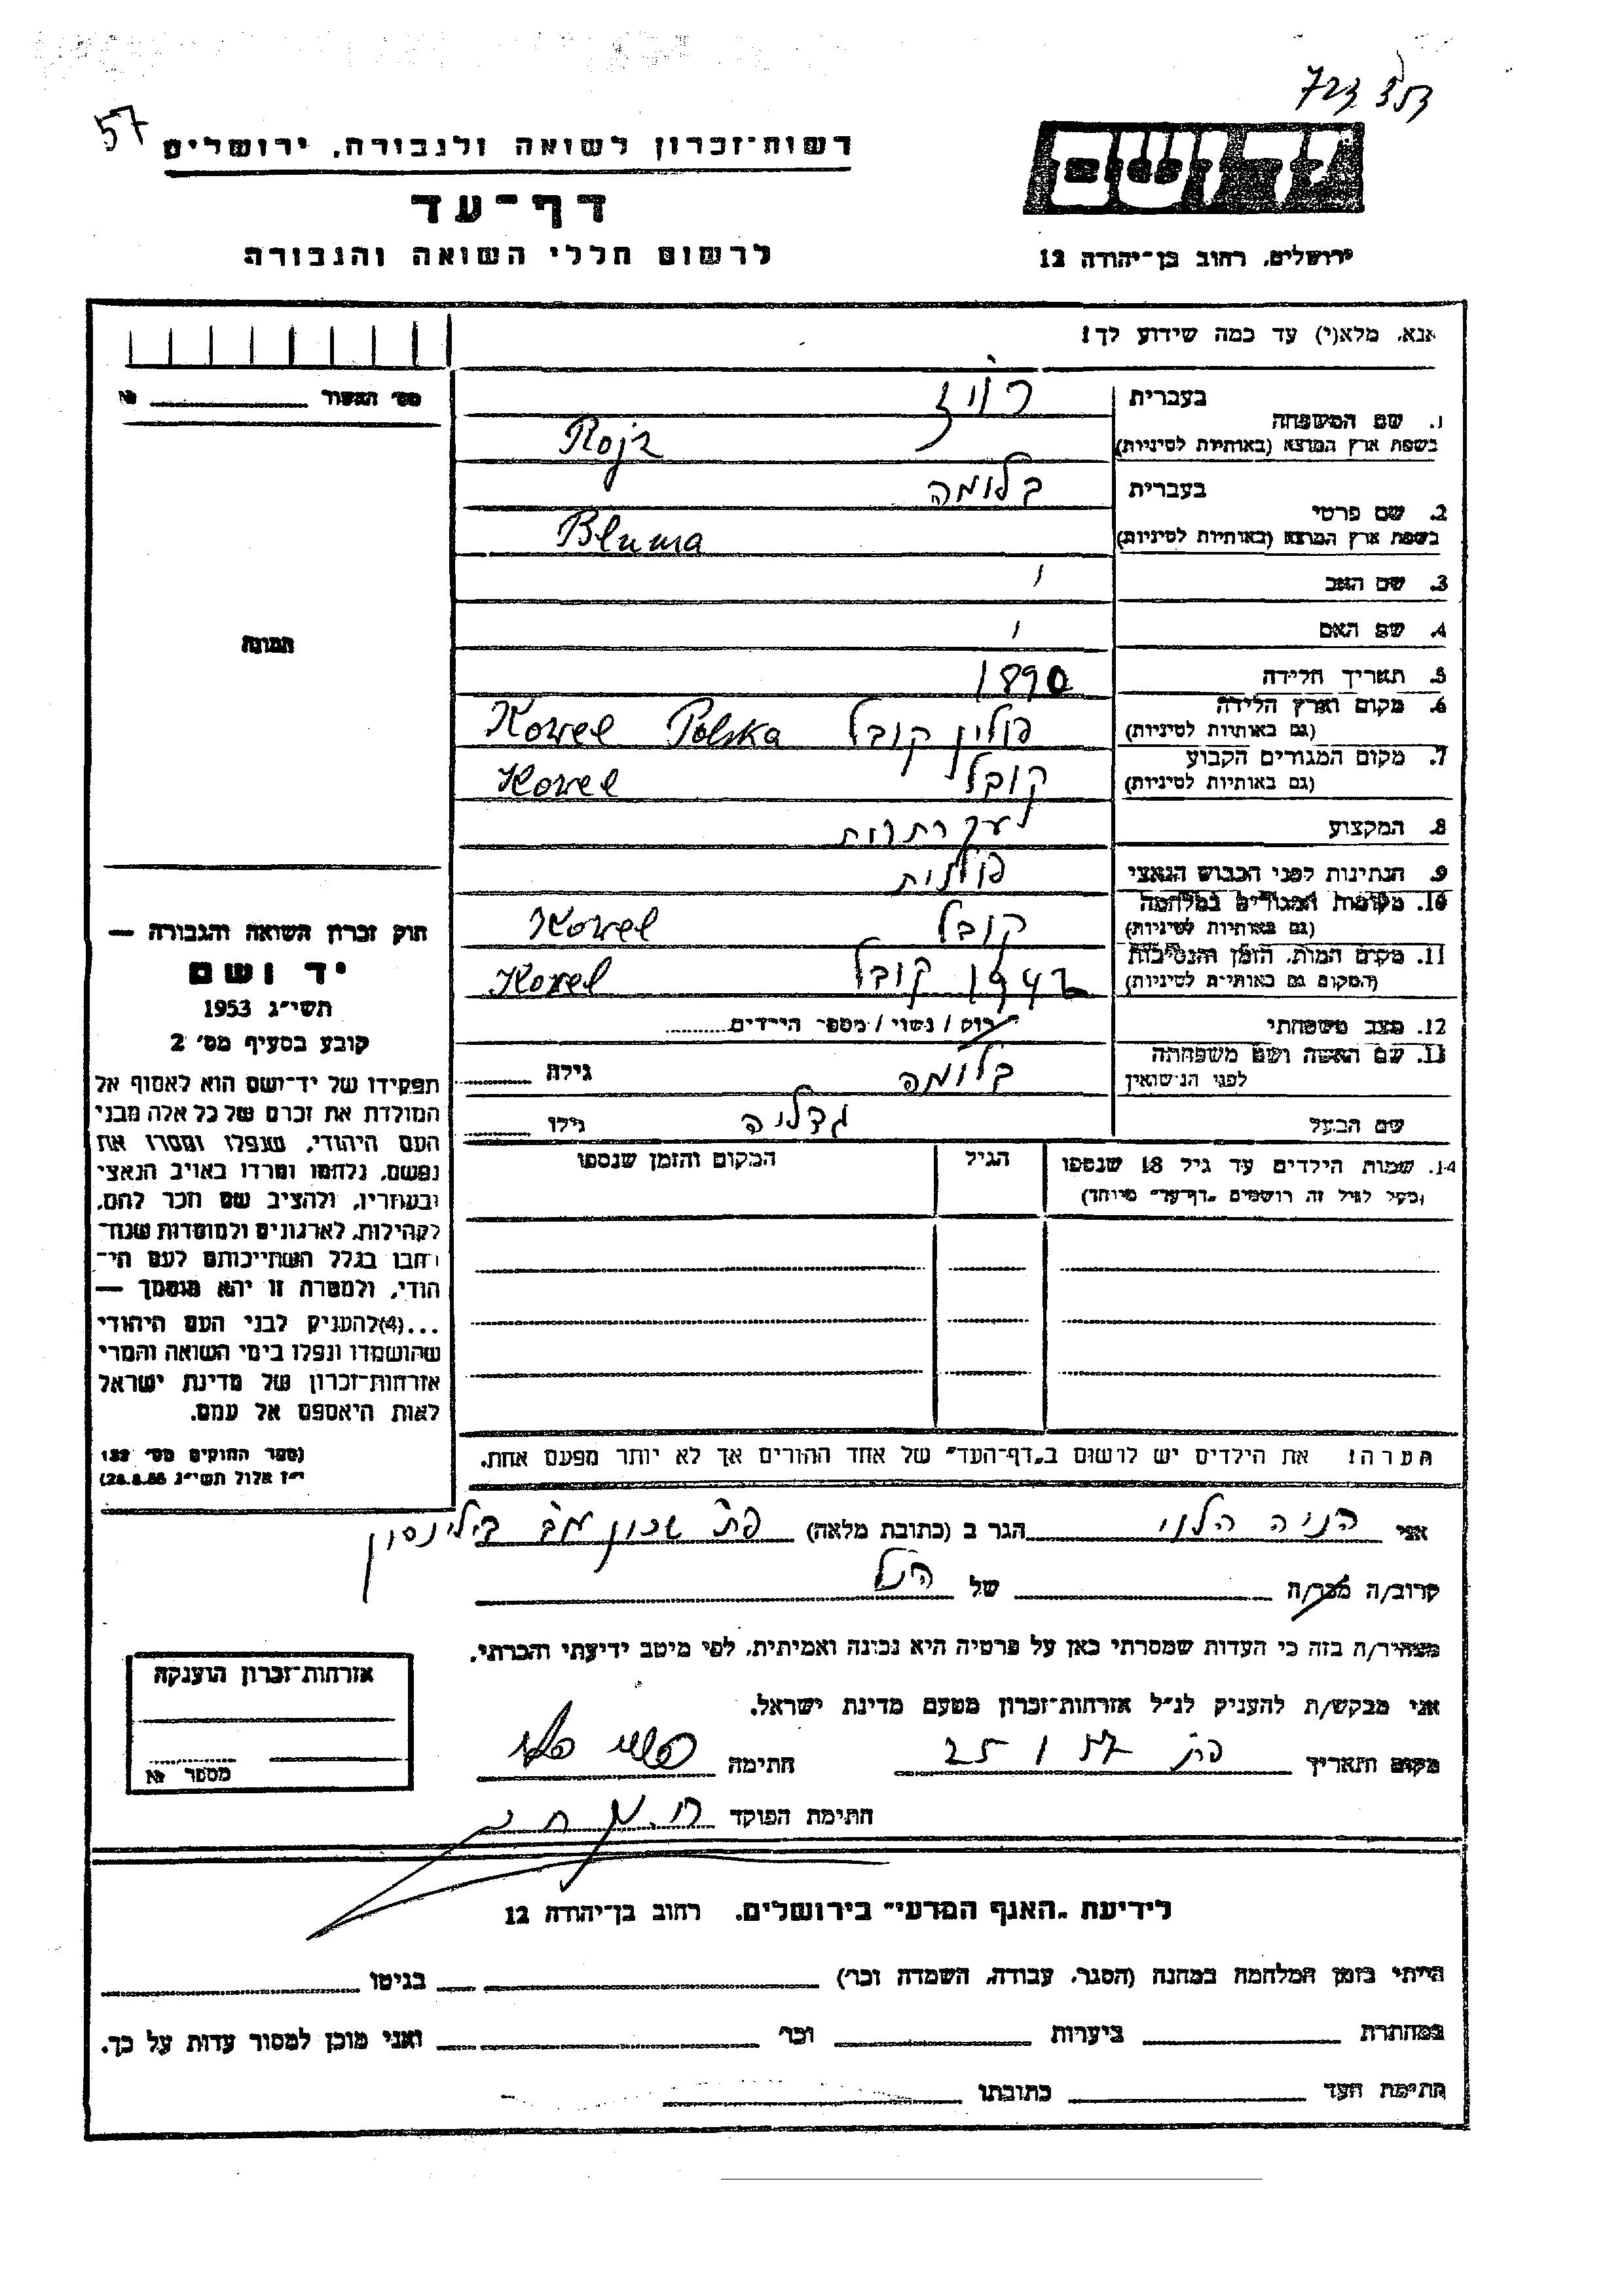 57
רשות-זכרון לשואה ולגבורה, ירושלים
דף-עד
לרשום חללי השואה והגבורה
ירושלים, רחוב בן-יהודה 12
אנא, מלא(י) עד כמה שידוע לך!
מס' האשור №
1. שם המשפחה
בעברית רויז
בשפת ארץ המוצא (באותיות לטיניות) Rojz
2. שם פרטי
בעברית בלומה
בשפת ארץ המוצא (באותיות לטיניות) Bluma
3. שם האב
4. שם האם
תמונה
5. תאריך הלידה 1890
6. מקום וארץ הלידה (גם באותיות לטיניות) פולין קובל Polska Kowel
7. מקום המגורים הקבוע (גם באותיות לטיניות) קובל Kowel
8. המקצוע עקרת בית
9. הנתינות לפני הכבוש הנאצי פולנית
10. מקומות המגורים במלחמה (גם באותיות לטיניות) קובל Kowel
11. מקום המות, הזמן והנסיבות (המקום גם באותיות לטיניות) 1942 קובל Kowel
12. מצב משפחתי רוק / נשוי / מספר הילדים
13. שם האשה ושם משפחתה לפני הנישואין בלומה גילה
שם הבעל גדליה גילו
14. שמות הילדים עד גיל 18 שנספו הגיל המקום והזמן שנספו
(מעל לגיל זה רושמים "דף-עד" מיוחד)
הערה! את הילדים יש לרשום ב"דף-העד" של אחד ההורים אך לא יותר מפעם אחת.
חוק זכרון השואה והגבורה —
יד ושם
תשי"ג 1953
קובע בסעיף מס' 2
תפקידו של יד-ושם הוא לאסוף אל
המולדת את זכרם של כל אלה מבני
העם היהודי, שנפלו ומסרו את
נפשם, נלחמו ומרדו באויב הנאצי
ובעוזריו, ולהציב שם וזכר להם,
לקהילות, לארגונים ולמוסדות שנח-
רבו בגלל השתייכותם לעם הי-
הודי, ולמטרה זו יהא מוסמך —
...(4)להעניק לבני העם היהודי
שהושמדו ונפלו בימי השואה והמרי
אזרחות-זכרון של מדינת ישראל
לאות היאספם אל עמם.
(ספר החוקים מס' 132
י"ז אלול תשי"ג 28.8.53)
אני הניה הלוי הגר ב (כתובת מלאה) פת שכון מב בילינסון
קרוב/ה מכר/ה של הנ"ל
מצהיר/ה בזה כי העדות שמסרתי כאן על פרטיה היא נכונה ואמיתית, לפי מיטב ידיעתי והכרתי.
אני מבקש/ת להעניק לנ"ל אזרחות-זכרון מטעם מדינת ישראל.
מקום ותאריך חתימה
חתימת הפוקד
אזרחות-זכרון הוענקה
מספר №
לידיעת "האגף המדעי" בירושלים, רחוב בן-יהודה 12
הייתי בזמן המלחמה במחנה (הסגר, עבודה, השמדה וכו') בגיטו
במחתרת ביערות וכו' ואני מוכן למסור עדות על כך.
חתימת העד כתובתו